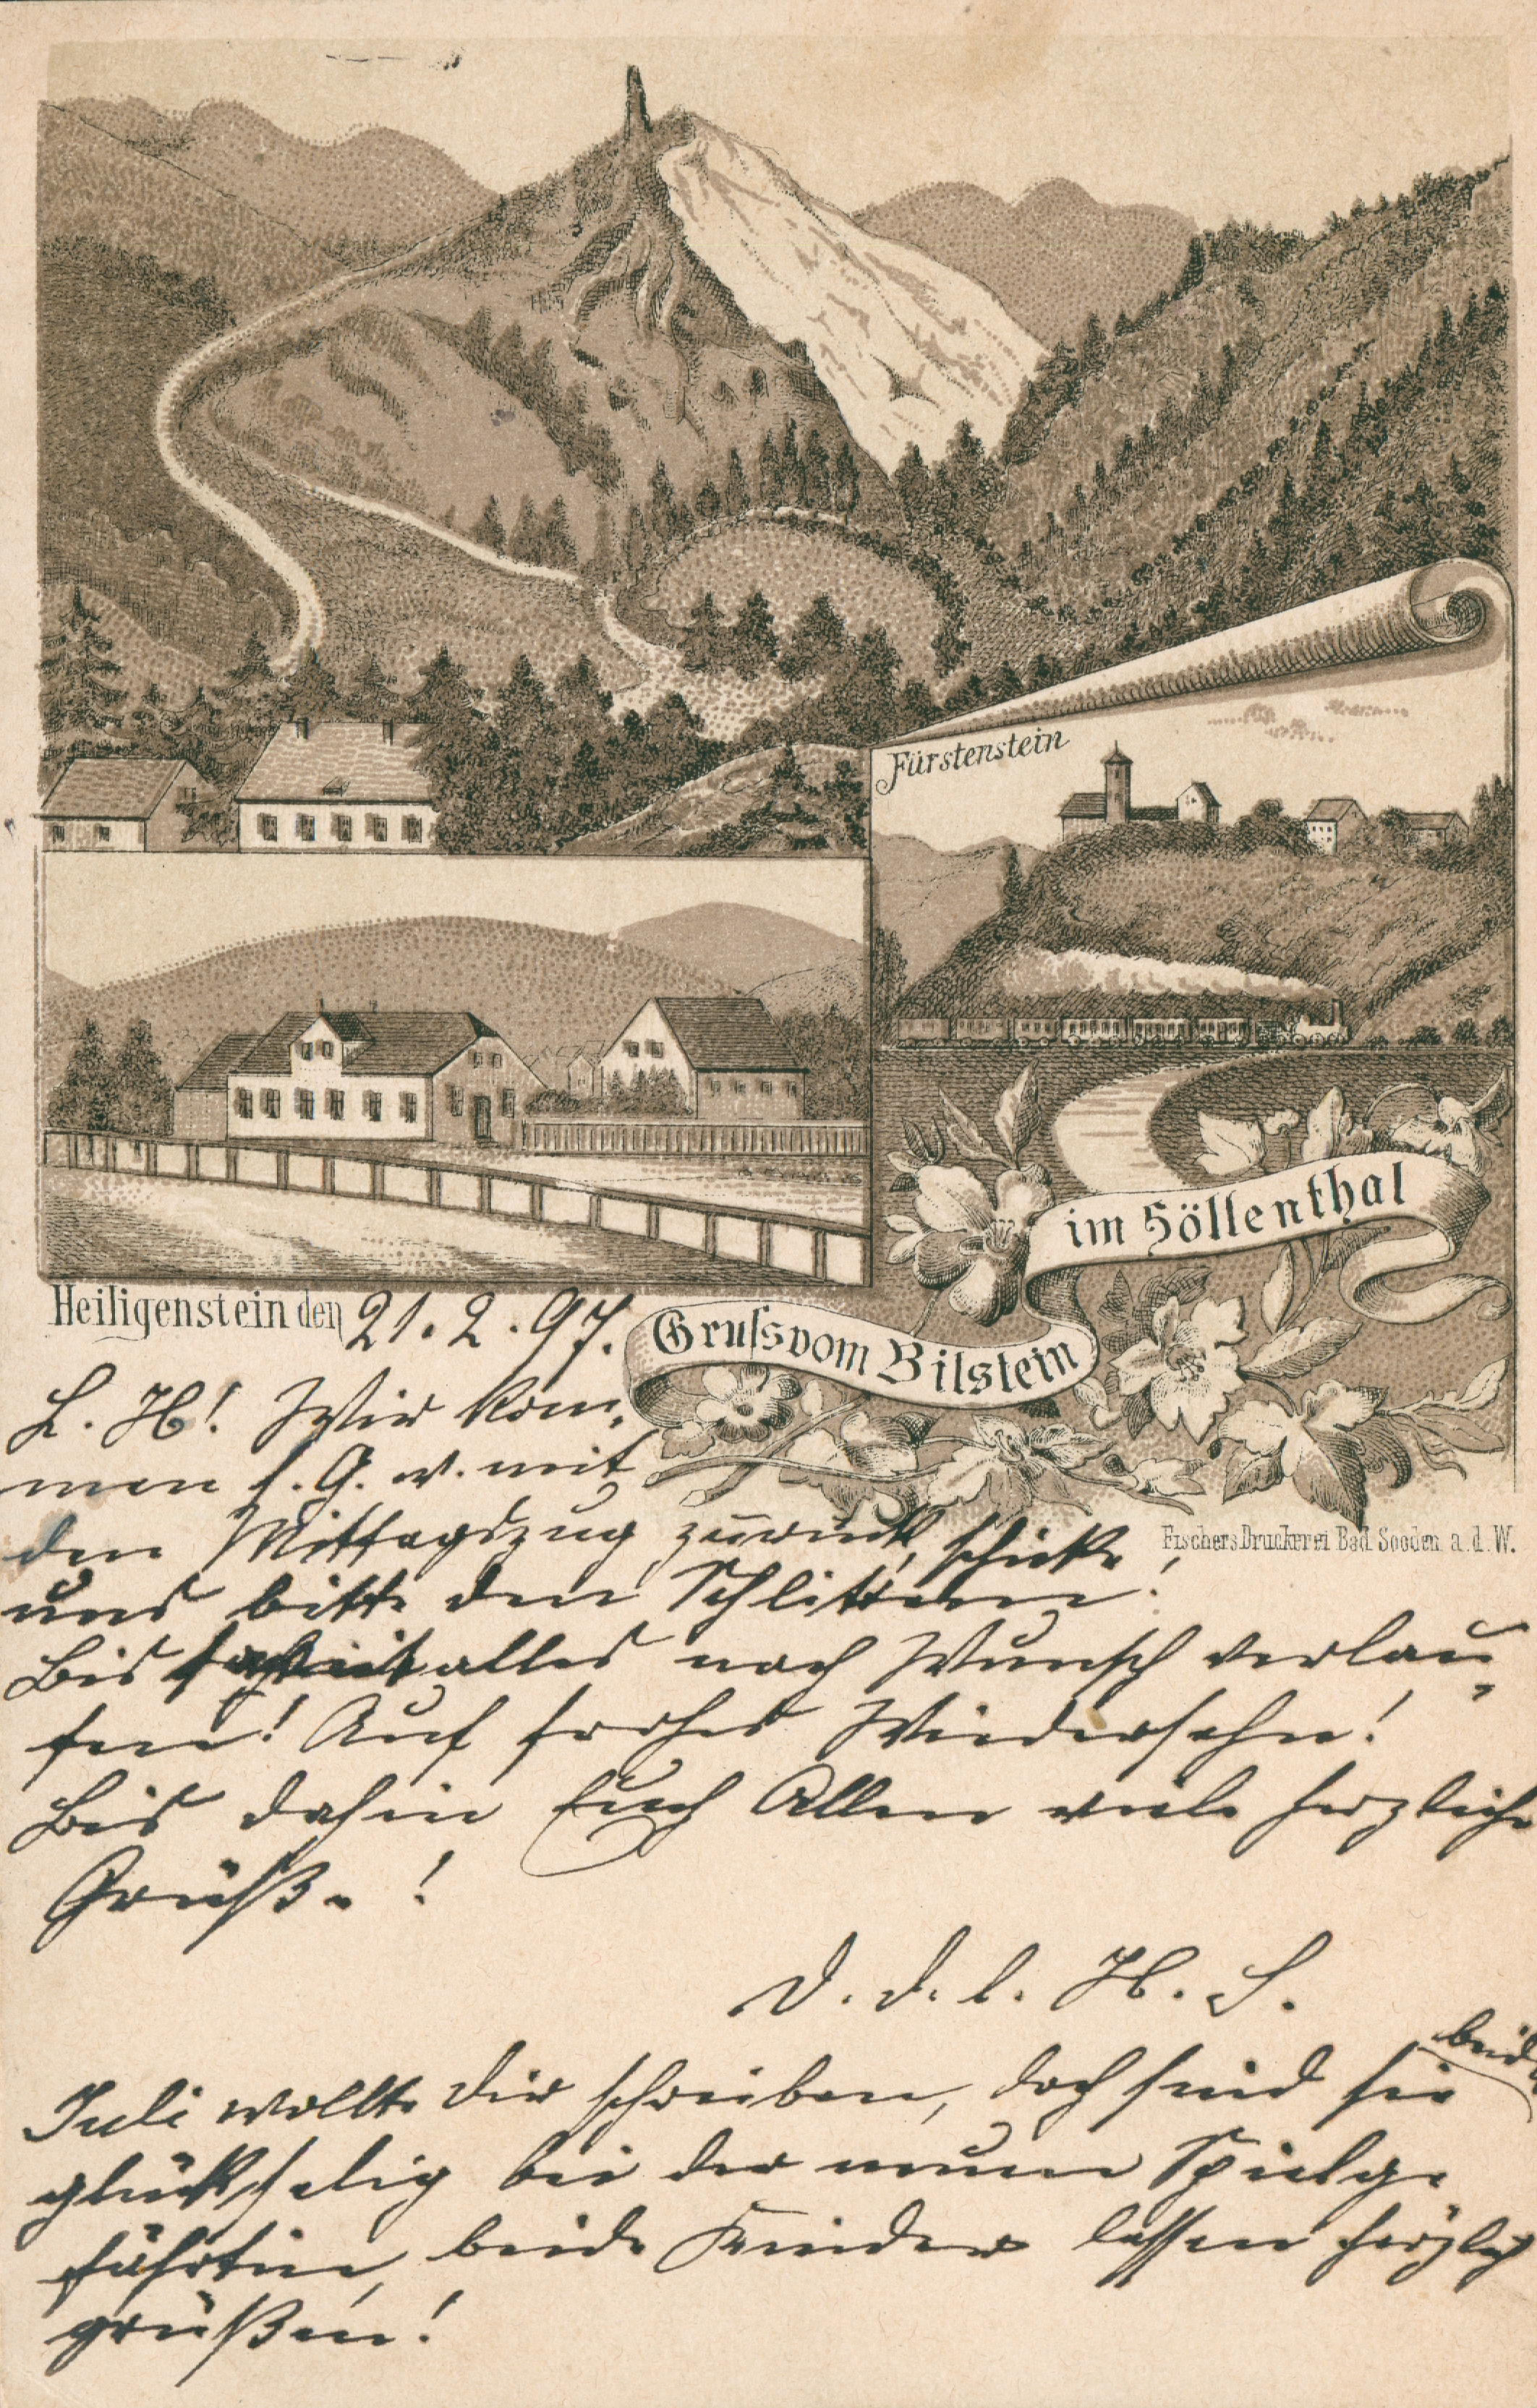 Fürstenstein
im Höllenthal
Gruss vom Bilstein
Heiligenstein den 21. 2. 97.
Fischers Druckerei Bad Sooden a. d. W.
L. H! Wir kom-
men s. G. w. mit
dem Mittagszug zurück, schicke
uns bitte den Schlitten!
Bis alles nach Wunsch verlau-
fen! Auf frohes Wiedersehn!
Bis dahin Euch Allen viele herzliche
Grüße!
D. d. l. H. S.
Juli wollte dir schreiben, doch sind sie beide
glückselig bei der neuen Spielge
fährtin, beide Kinder lassen herzlich
grüßen!